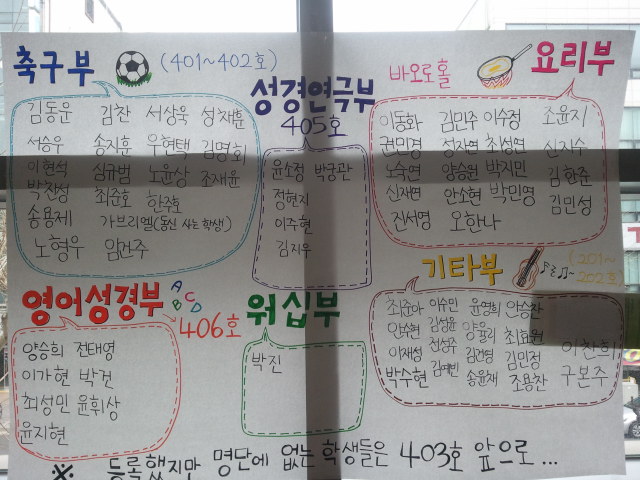 축구부 (401~402호)
김동윤 김찬 서상욱 성채훈
서승우 송지훈 우현택 김명회
이현석 심규범 노윤상 조재윤
박찬성 최준호 한주호
송용제 가브리엘(동신 사는 학생)
노형우 암건주
성경연극부
405호
윤소정 박궁관
정현지
이주현
김지우
바오로홀 요리부
이동화 김민주 이수정 조윤지
권민영 성자연 최성연 신지수
노숙연 양승원 박지민 김한준
신재연 안소현 박민영 김민성
진서영 오한나
영어성경부 ABCD
406호
양승희 전태영
이가현 박건
최성민 윤휘상
윤지현
워십부
박진
기타부 (201~202호)
최준아 이수민 윤영희 안승찬
안수현 김성윤 양울리 최효원 이찬희
이재성 전성주 김건영 김민정
박수현 김예빈 송윤재 조용찬 구본주
※ 등록했지만 명단에 없는 학생들은 403호 앞으로...